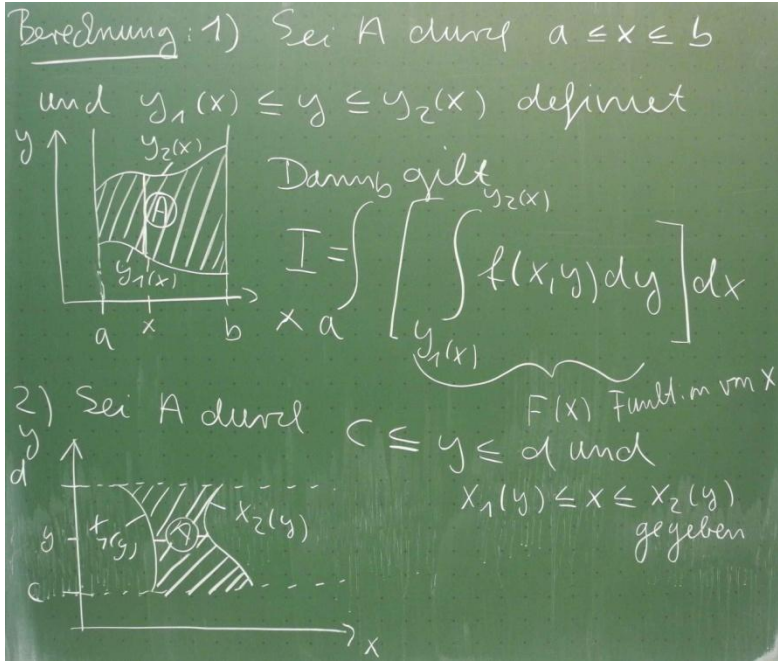 Berechnung: 1) Sei A durch a ≤ x ≤ b
und y₁(x) ≤ y ≤ y₂(x) definiert
y
y₂(x)
A
y₁(x)
a x b
x
Dann gilt
I = ∫_a^b [ ∫_{y₁(x)}^{y₂(x)} f(x,y) dy ] dx
F(x) Funkt. in von x
2) Sei A durch c ≤ y ≤ d und
x₁(y) ≤ x ≤ x₂(y)
gegeben
y
d
x₁(y) A x₂(y)
y
c
x